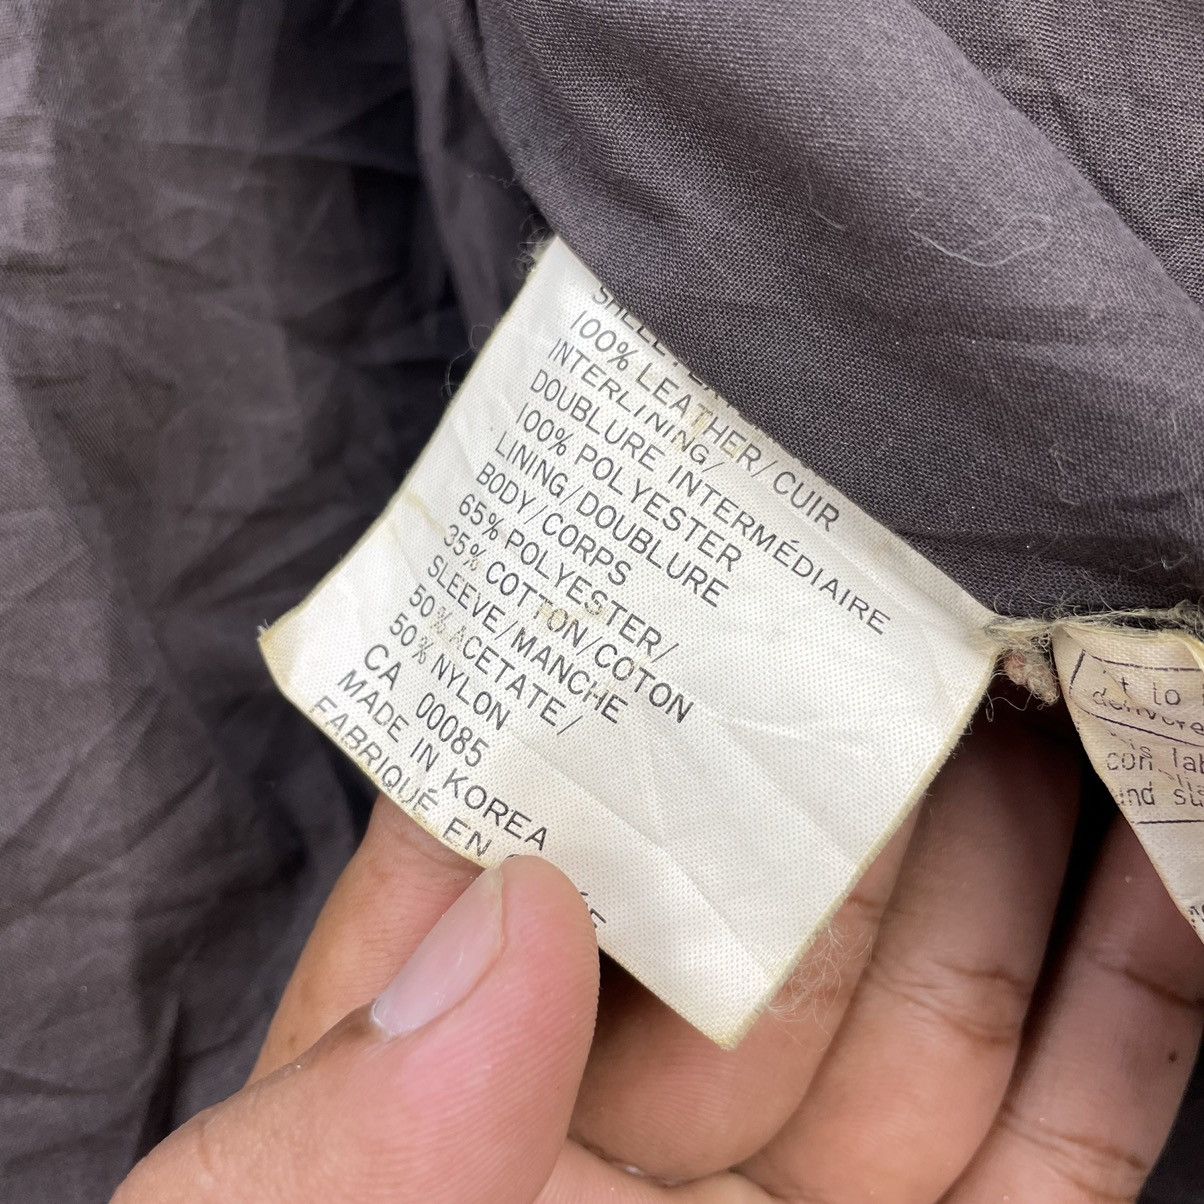 100% LEATHER/CUIR
INTERLINING/
DOUBLURE INTERMÉDIAIRE
100% POLYESTER
LINING/DOUBLURE
BODY/CORPS
65% POLYESTER/
35% COTTON/COTON
SLEEVE/MANCHE
50% ACETATE/
50% NYLON
CA 00085
MADE IN KOREA
FABRIQUÉ EN
to
con lab